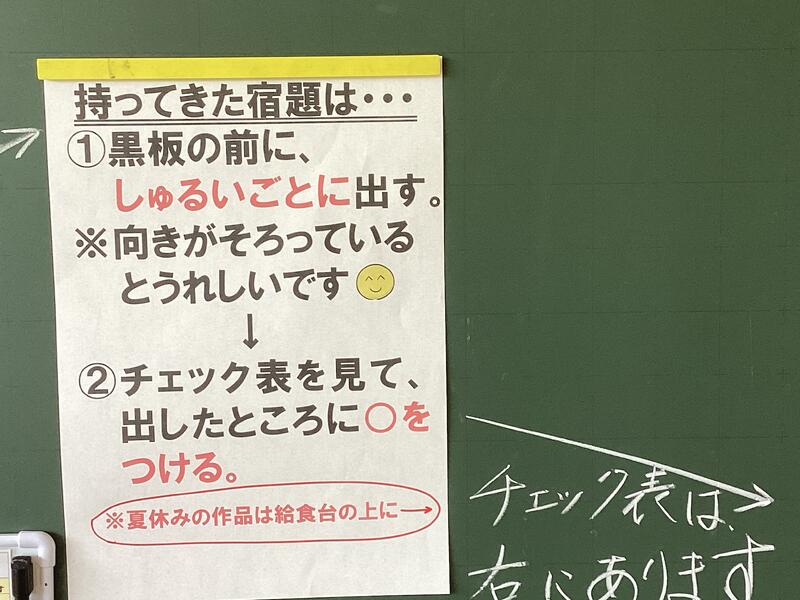 持ってきた宿題は・・・
①黒板の前に、
しゅるいごとに出す。
※向きがそろっている
とうれしいです
↓
②チェック表を見て、
出したところに○を
つける。
※夏休みの作品は給食台の上に→
チェック表は、
右にあります